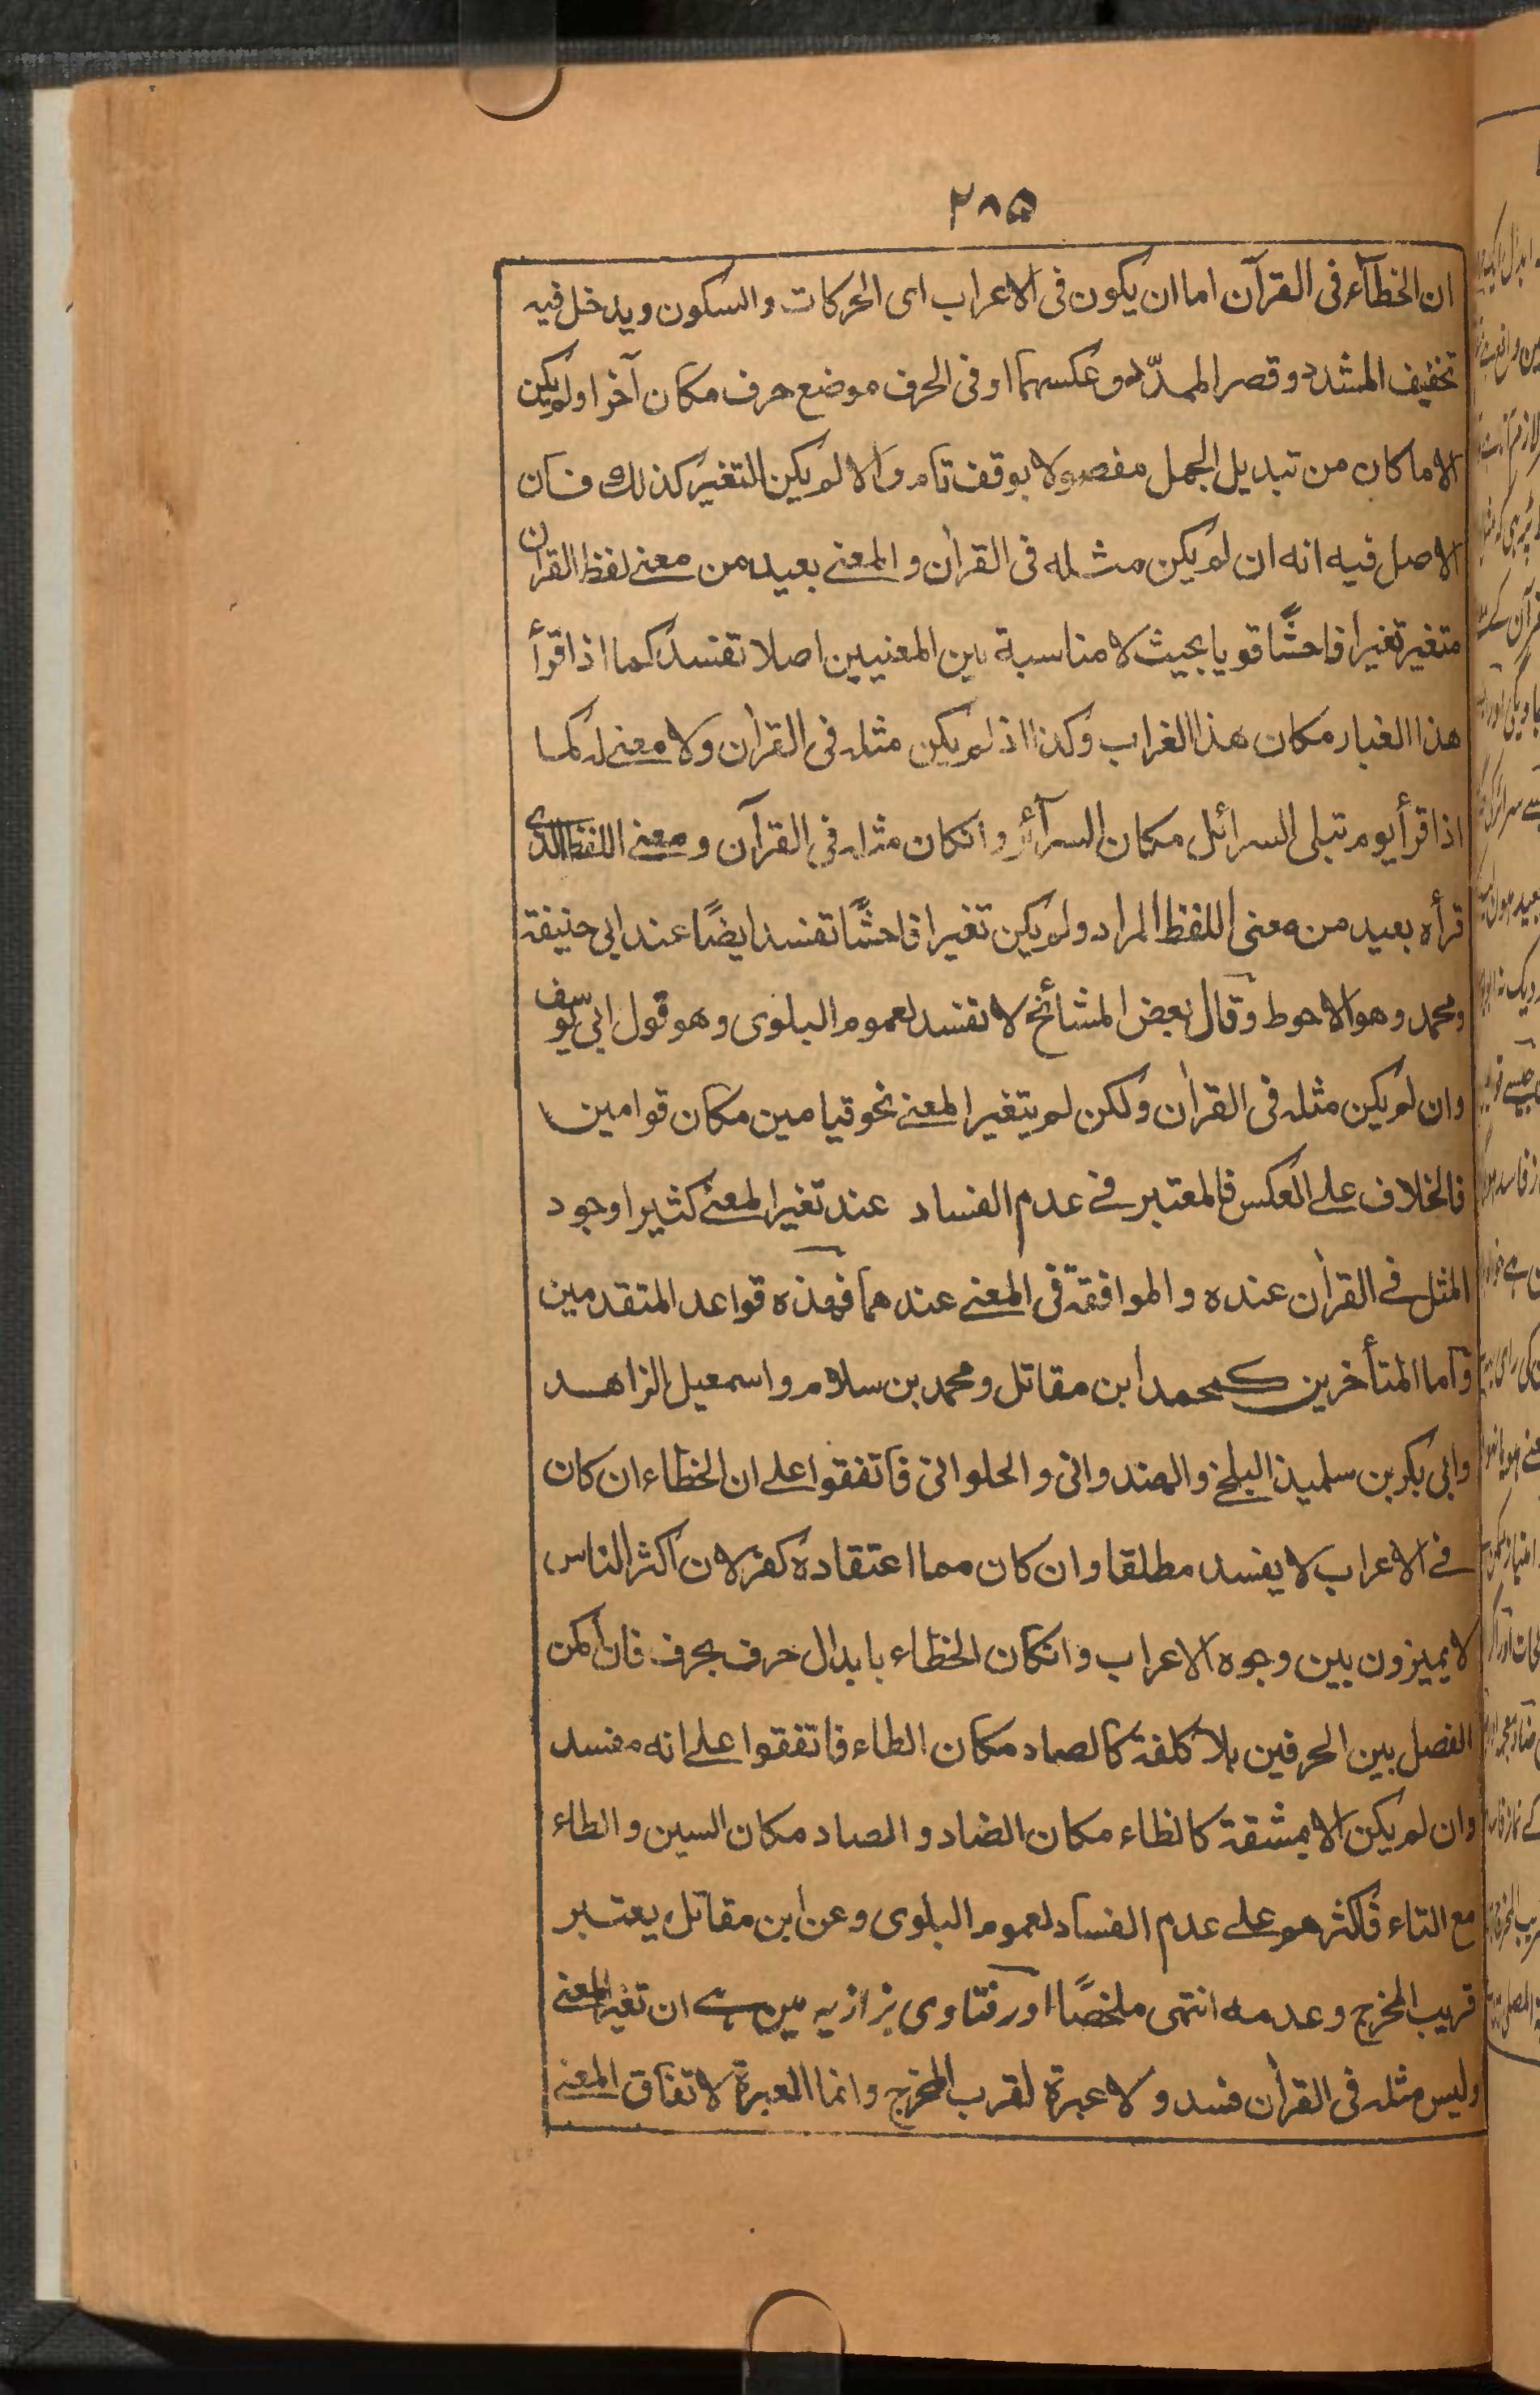 ۲۸۵
ان الخطآء فی القرآن اما ان یکون فی الاعراب ای الحرکات والسکون ویدخل فیه
تخفیف المشدد وقصر الممدّد وعکسهما او فی الحرف موضع حرف مکان آخر اولم یکن
الا ما کان من تبدیل الجمل مفصولا بوقف تام والا لم یکن التغیر کذلك فان
الاصل فیه انه ان لم یکن مثله فی القراٰن والمعنے بعید من معنے لفظ القراٰن
متغیر تغیرا فاحشًا قویا بحیث لا مناسبة بین المعنیین اصلا تفسد کما اذا قرأ
هذا الغبار مکان هذا الغراب وکذا اذ لم یکن مثله فی القراٰن ولا معنے له کما
اذا قرأ یوم تبلی السرائل مکان السرآئر وانکان مثله فی القرآن ومعنے اللفظ الذی
قرأه بعید من معنی اللفظ المراد ولم یکن تغیرا فاحشًا تفسد ایضًا عند ابی حنیفة
ومحمد وهو الاحوط وقال بعض المشائخ لا تفسد لعموم البلوی وهو قول ابی یوسف
وان لم یکن مثله فی القراٰن ولکن لم یتغیر المعنے نحو قیامین مکان قوامین
فالخلاف علے العکس فالمعتبر فے عدم الفساد عند تغیر المعنے کثیرا وجود
المثل فے القراٰن عنده والموافقة فی المعنے عندهما فهذه قواعد المتقدمین
وآما المتأخرین کمحمد ابن مقاتل ومحمد بن سلام واسمعیل الزاهد
وابی بکر بن سلمیذ البلخے والهندوانی والحلوانی فاتفقوا علے ان الخطاء ان کان
فے الاعراب لا یفسد مطلقا وان کان مما اعتقاده کفر لان اکثر الناس
لا یمیزون بین وجوه الاعراب وانکان الخطاء بابدال حرف بحرف فان امکن
الفصل بین الحرفین بلا کلفة کالصاد مکان الطاء فاتفقوا علے انه مفسد
وان لم یکن الا بمشقة کالظاء مکان الضاد والصاد مکان السین والطاء
مع التاء فاکثرهم علے عدم الفساد لعموم البلوی وعن ابن مقاتل یعتبر
قریب المخرج وعدمه انتهی ملخصًا اور فتاوی بزازیه مین ہے ان تغیر المعنے
ولیس مثله فی القراٰن فسد ولا عبرة لقرب المخرج وانما العبرة لاتفاق المعنے